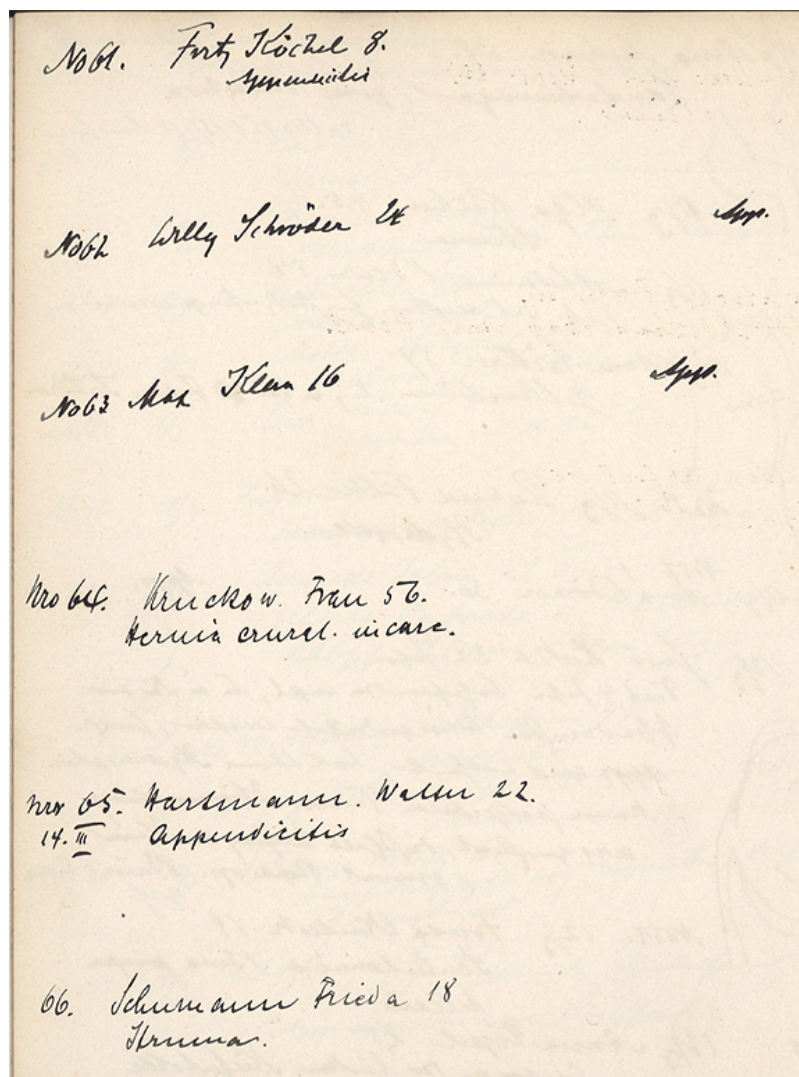 No 61. Fritz Köchel 8.
Appendicitis
No 62 Willy Schröder 24 App.
No 63 Max Klein 16 App.
Nro 64. Kruckow. Frau 56.
Hernia crural. incarc.
Nro 65. Hartmann. Walter 22.
14. III Appendicitis
66. Schumann Frieda 18
Struma.